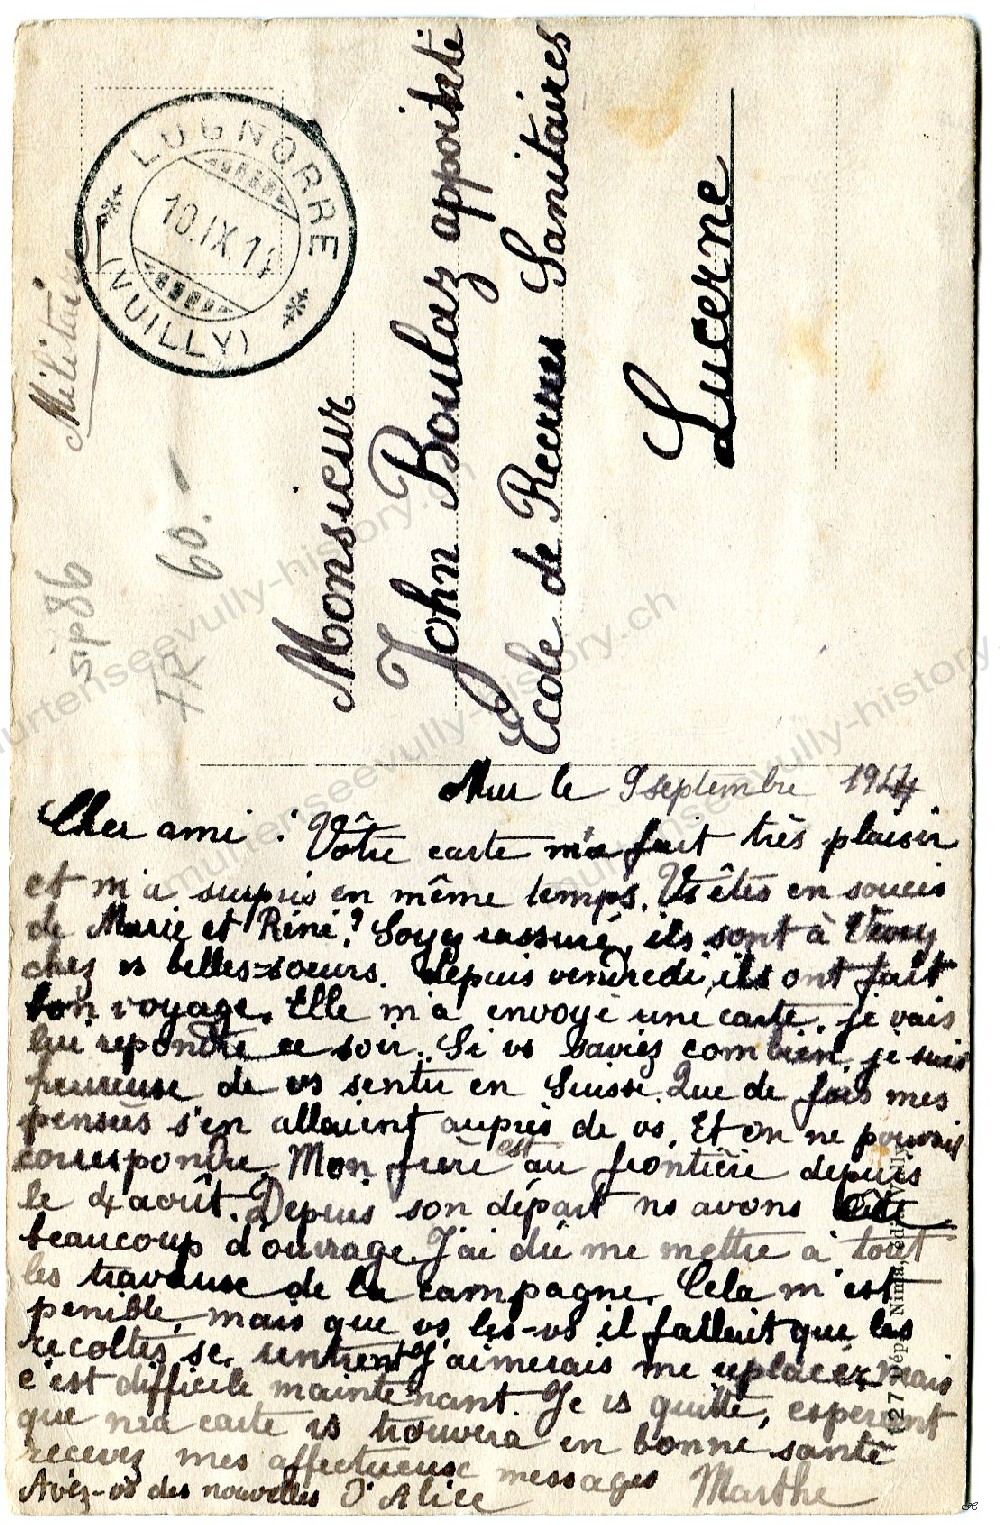 Militaire
LUGNORRE
10.IX.14
(VUILLY)
sip86
FR 60.-
Monsieur
John Boulaz appointé
École de Recrues Sanitaires
Lucerne
Mur le 9 septembre 1914
Cher ami! Vôtre carte m'a fait très plaisir
et m'a surpris en même temps. Vs êtes en soucis
de Marie et Réné? Soyez rassuré, ils sont à Vevey
chez vs belles-soeurs. depuis vendredi, ils ont fait
bon voyage. Elle m'a envoyé une carte. je vais
lui repondre ce soir. Si vs saviez combien, je suis
heureuse de vs sentir en Suisse. Que de fois mes
pensées s'en allaient auprès de vs. Et on ne pouvait
correspondre. Mon frère est au frontière depuis
le 4 août. Depuis son départ ns avons
beaucoup d'ouvrage. J'ai dû me mettre à tout
les travaux de la campagne. Cela m'est
penible, mais que vs les-vs il fallait que les
récoltes se rentrent. J'aimerais me replacer mais
c'est difficile maintenant. Je vs quitte, esperant
que ma carte vs trouvera en bonne santé
recevez mes affectueuse messages Marthe
Avez-vs des nouvelles d'Alice
murtenseevully-history.ch